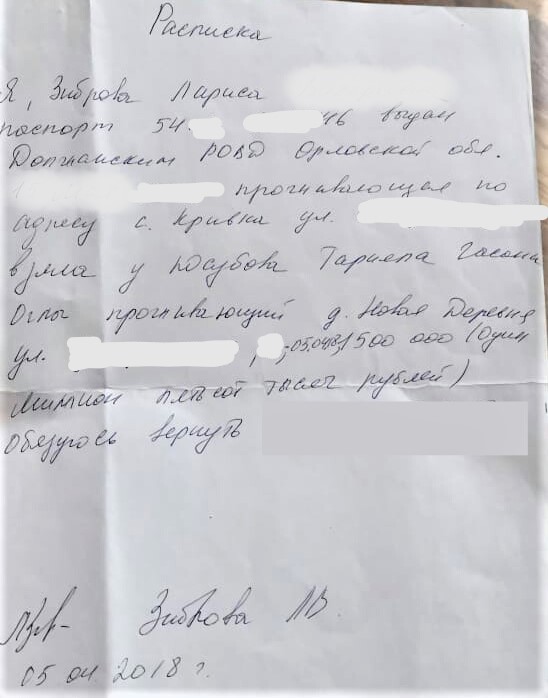 Расписка
Я, Зиброва Лариса
паспорт 54 46 выдан
Долгнанским РОВД Орловской обл.
прогнивающая по
адресу с. Кривка ул.
взяла у Юсубова Тариела Гасона
Оглы прогнивающий д. Новая Деревня
ул. , , 1500 000 (Один
миллион пятьсот тысяч рублей)
обязуюсь вернуть
Зиброва ЛВ.
05 04. 2018 г.